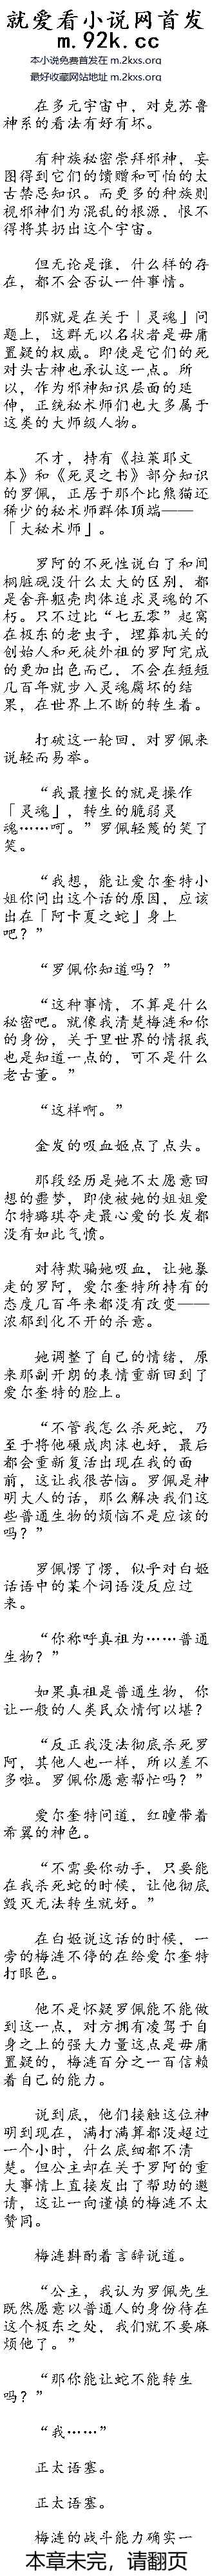 就爱看小说网首发
m.92k.cc
本小说免费首发在 m.2kxs.org
最好收藏网站地址 m.2kxs.org
在多元宇宙中，对克苏鲁
神系的看法有好有坏。
有种族秘密崇拜邪神，妄
图得到它们的馈赠和可怕的太
古禁忌知识。而更多的种族则
视邪神们为混乱的根源，恨不
得将其扔出这个宇宙。
但无论是谁，什么样的存
在，都不会否认一件事情。
那就是在关于「灵魂」问
题上，这群无以名状者是毋庸
置疑的权威。即使是它们的死
对头古神也承认这一点。所
以，作为邪神知识层面的延
伸，正统秘术师们也大多属于
这类的大师级人物。
不才，持有《拉莱耶文
本》和《死灵之书》部分知识
的罗佩，正居于那个比熊猫还
稀少的秘术师群体顶端——
「大秘术师」。
罗阿的不死性说白了和间
桐脏砚没什么太大的区别，都
是舍弃躯壳肉体追求灵魂的不
朽。只不过比“七五零”起窝
在极东的老虫子，埋葬机关的
创始人和死徒外祖的罗阿完成
的更加出色而已，不会在短短
几百年就步入灵魂腐坏的结
果，在世界上不断的转生着。
打破这一轮回，对罗佩来
说轻而易举。
“我最擅长的就是操作
「灵魂」，转生的脆弱灵
魂……呵。”罗佩轻蔑的笑了
笑。
“我想，能让爱尔奎特小
姐你问出这个话的原因，应该
出在「阿卡夏之蛇」身上
吧？”
“罗佩你知道吗？”
“这种事情，不算是什么
秘密吧。就像我清楚梅涟和你
的身份，关于里世界的情报我
也是知道一点的，可不是什么
老古董。”
“这样啊。”
金发的吸血姬点了点头。
那段经历是她不太愿意回
想的噩梦，即使被她的姐姐爱
尔特璐琪夺走最心爱的长发都
没有如此气愤。
对待欺骗她吸血，让她暴
走的罗阿，爱尔奎特所持有的
态度几百年来都没有改变——
浓郁到化不开的杀意。
她调整了自己的情绪，原
来那副开朗的表情重新回到了
爱尔奎特的脸上。
“不管我怎么杀死蛇，乃
至于将他碾成肉沫也好，最后
都会重新复活出现在我的面
前，这让我很苦恼。罗佩是神
明大人的话，那么解决我们这
些普通生物的烦恼不是应该的
吗？”
罗佩愣了愣，似乎对白姬
话语中的某个词语没反应过
来。
“你称呼真祖为……普通
生物？”
如果真祖是普通生物，你
让一般的人类民众情何以堪？
“反正我没法彻底杀死罗
阿，其他人也一样，所以差不
多啦。罗佩你愿意帮忙吗？”
爱尔奎特问道，红瞳带着
希翼的神色。
“不需要你动手，只要能
在我杀死蛇的时候，让他彻底
毁灭无法转生就好。”
在白姬说这话的时候，一
旁的梅涟不停的在给爱尔奎特
打眼色。
他不是怀疑罗佩能不能做
到这一点，对方拥有凌驾于自
身之上的强大力量这点是毋庸
置疑的，梅涟百分之一百信赖
着自己的能力。
说到底，他们接触这位神
明到现在，满打满算都没超过
一个小时，什么底细都不清
楚。但公主却在关于罗阿的重
大事情上直接发出了帮助的邀
请，这让一向谨慎的梅涟不太
赞同。
梅涟斟酌着言辞说道。
“公主，我认为罗佩先生
既然愿意以普通人的身份待在
这个极东之处，我们就不要麻
烦他了。”
“那你能让蛇不能转生
吗？”
“我……”
正太语塞。
正太语塞。
梅涟的战斗能力确实一
本章未完，请翻页